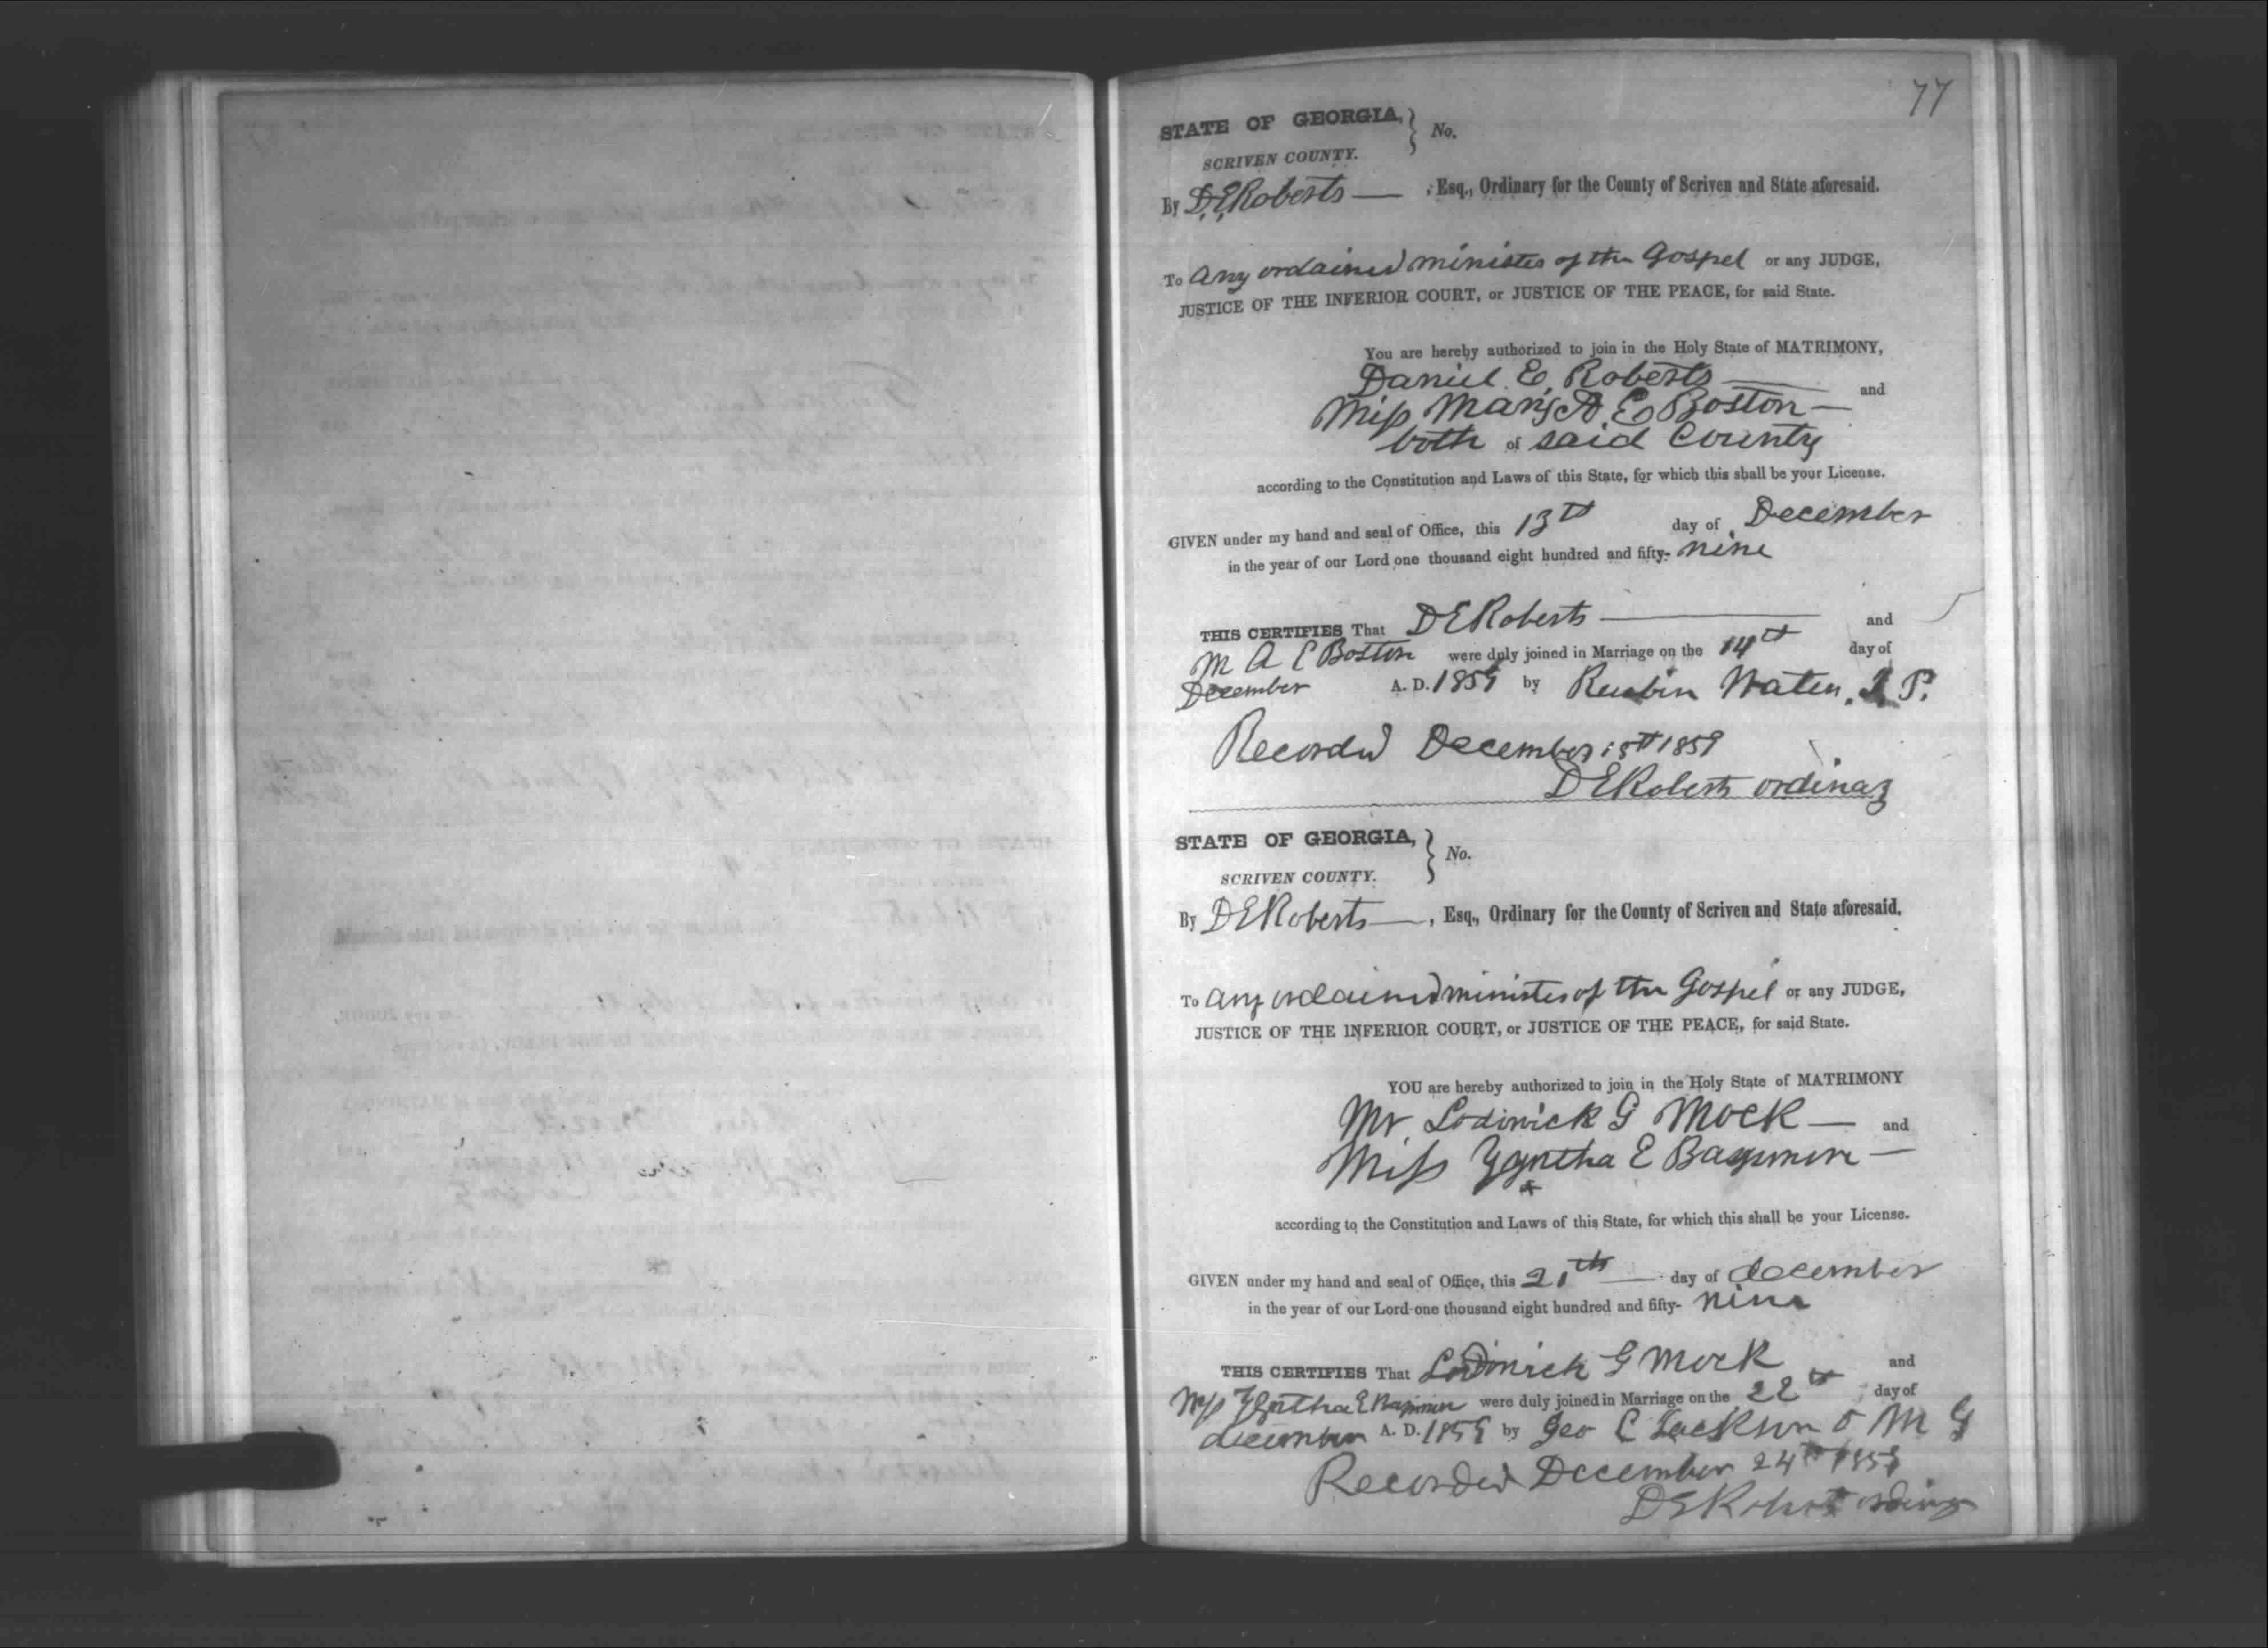 77
STATE OF GEORGIA, } No.
SCRIVEN COUNTY.
By D. E. Roberts — , Esq., Ordinary for the County of Scriven and State aforesaid.
To any ordained minister of the Gospel or any JUDGE,
JUSTICE OF THE INFERIOR COURT, or JUSTICE OF THE PEACE, for said State.
You are hereby authorized to join in the Holy State of MATRIMONY,
Daniel E. Roberts — and
Miss Mary A E Boston —
both of said County
according to the Constitution and Laws of this State, for which this shall be your License.
GIVEN under my hand and seal of Office, this 13th day of December
in the year of our Lord one thousand eight hundred and fifty- nine
THIS CERTIFIES That D E Roberts — and
M A E Boston were duly joined in Marriage on the 14th day of
December A. D. 1859 by Reubin J. P.
Recorded December 1859
D E Roberts ordinary
STATE OF GEORGIA, } No.
SCRIVEN COUNTY.
By D E Roberts — , Esq., Ordinary for the County of Scriven and State aforesaid.
To any ordained minister of the Gospel or any JUDGE,
JUSTICE OF THE INFERIOR COURT, or JUSTICE OF THE PEACE, for said State.
YOU are hereby authorized to join in the Holy State of MATRIMONY
Mr. Lodwick G Mock — and
Miss E —
according to the Constitution and Laws of this State, for which this shall be your License.
GIVEN under my hand and seal of Office, this 21th — day of december
in the year of our Lord one thousand eight hundred and fifty- nine
THIS CERTIFIES That Lodwick G Mock and
Miss E were duly joined in Marriage on the 22th day of
december A. D. 1859 by Geo C Jackson O M G
Recorded December 24th 1859
D E Roberts ordinary